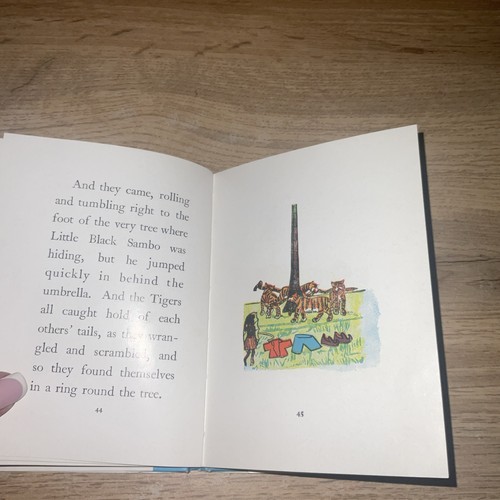 And they came, rolling
and tumbling right to the
foot of the very tree where
Little Black Sambo was
hiding, but he jumped
quickly in behind the
umbrella. And the Tigers
all caught hold of each
others' tails, as they wran-
gled and scrambled, and
so they found themselves
in a ring round the tree.
44
45